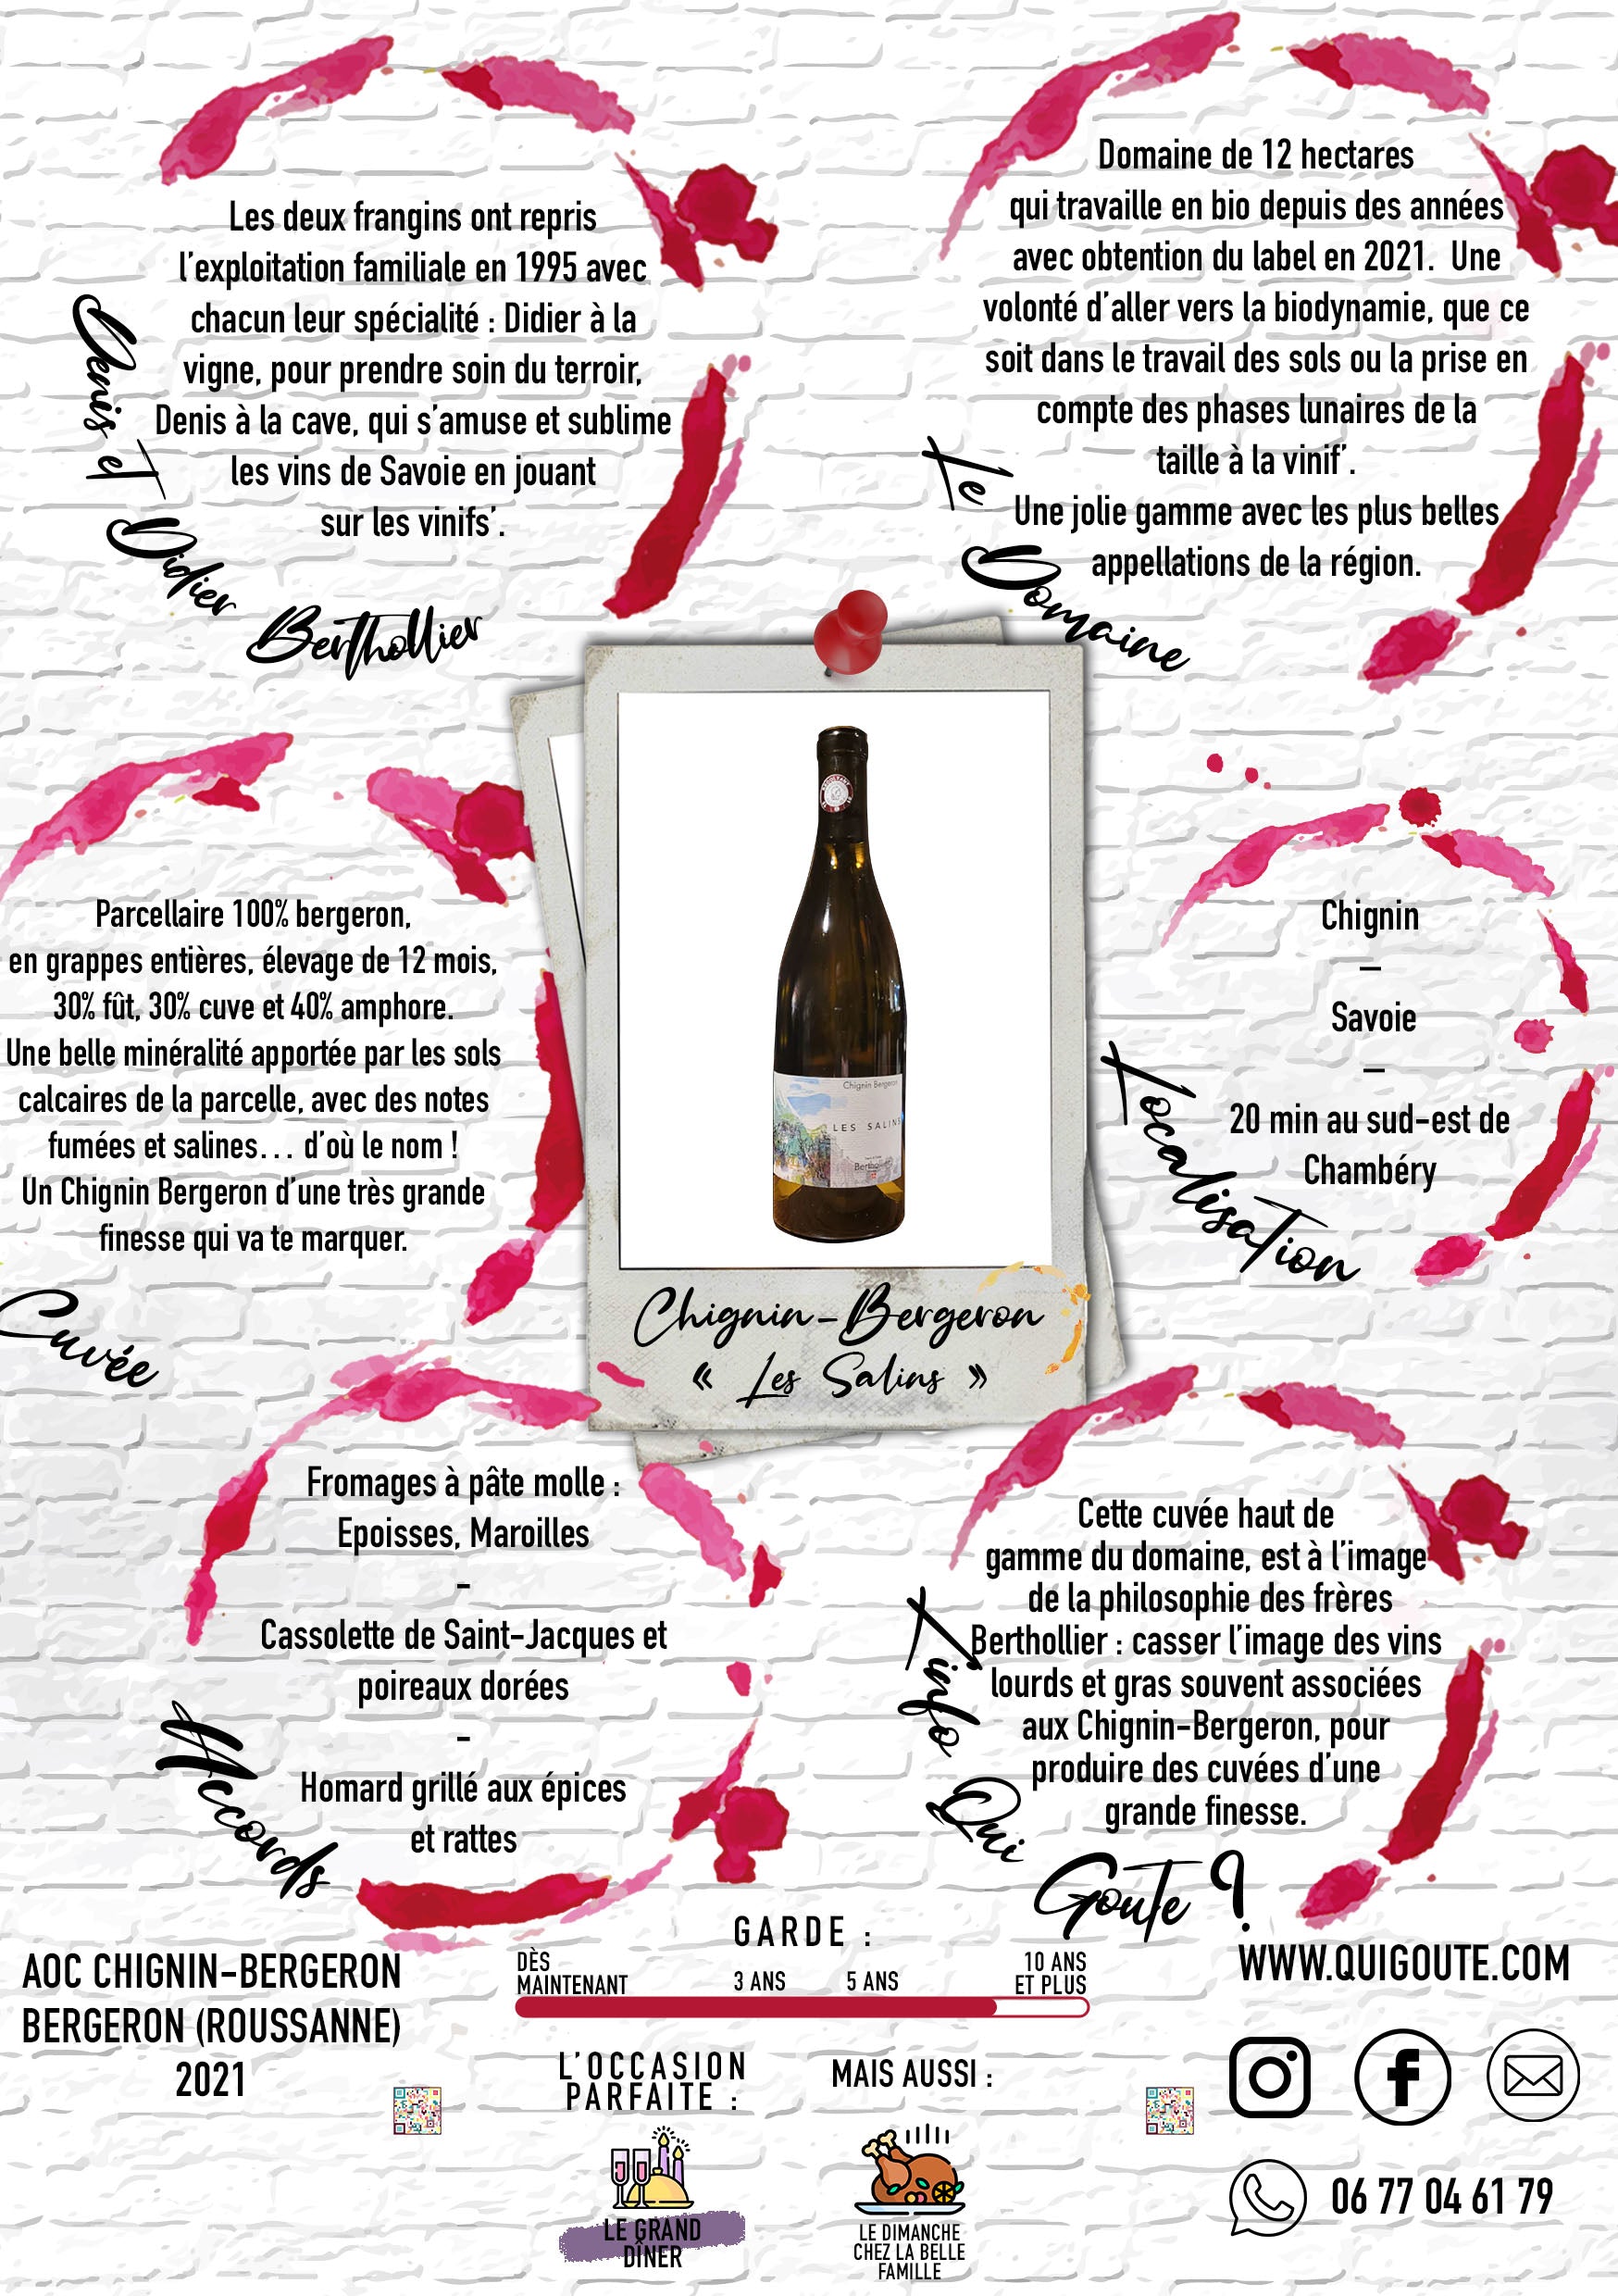 Les deux frangins ont repris
l'exploitation familiale en 1995 avec
chacun leur spécialité : Didier à la
vigne, pour prendre soin du terroir,
Denis à la cave, qui s'amuse et sublime
les vins de Savoie en jouant
sur les vinifs'.
Denis et Didier Berthollier
Domaine de 12 hectares
qui travaille en bio depuis des années
avec obtention du label en 2021. Une
volonté d'aller vers la biodynamie, que ce
soit dans le travail des sols ou la prise en
compte des phases lunaires de la
taille à la vinif'.
Une jolie gamme avec les plus belles
appellations de la région.
Le Domaine
Parcellaire 100% bergeron,
en grappes entières, élevage de 12 mois,
30% fût, 30% cuve et 40% amphore.
Une belle minéralité apportée par les sols
calcaires de la parcelle, avec des notes
fumées et salines... d'où le nom !
Un Chignin Bergeron d'une très grande
finesse qui va te marquer.
Cuvée
Chignin Bergeron
LES SALINS
Chignin-Bergeron
« Les Salins »
Chignin
–
Savoie
–
20 min au sud-est de
Chambéry
Localisation
Fromages à pâte molle :
Epoisses, Maroilles
-
Cassolette de Saint-Jacques et
poireaux dorées
-
Homard grillé aux épices
et rattes
Accords
Cette cuvée haut de
gamme du domaine, est à l'image
de la philosophie des frères
Berthollier : casser l'image des vins
lourds et gras souvent associées
aux Chignin-Bergeron, pour
produire des cuvées d'une
grande finesse.
L'info Qui Goute ?
AOC CHIGNIN-BERGERON
BERGERON (ROUSSANNE)
2021
GARDE :
DÈS
MAINTENANT
3 ANS
5 ANS
10 ANS
ET PLUS
L'OCCASION
PARFAITE :
LE GRAND
DÎNER
MAIS AUSSI :
LE DIMANCHE
CHEZ LA BELLE
FAMILLE
WWW.QUIGOUTE.COM
06 77 04 61 79